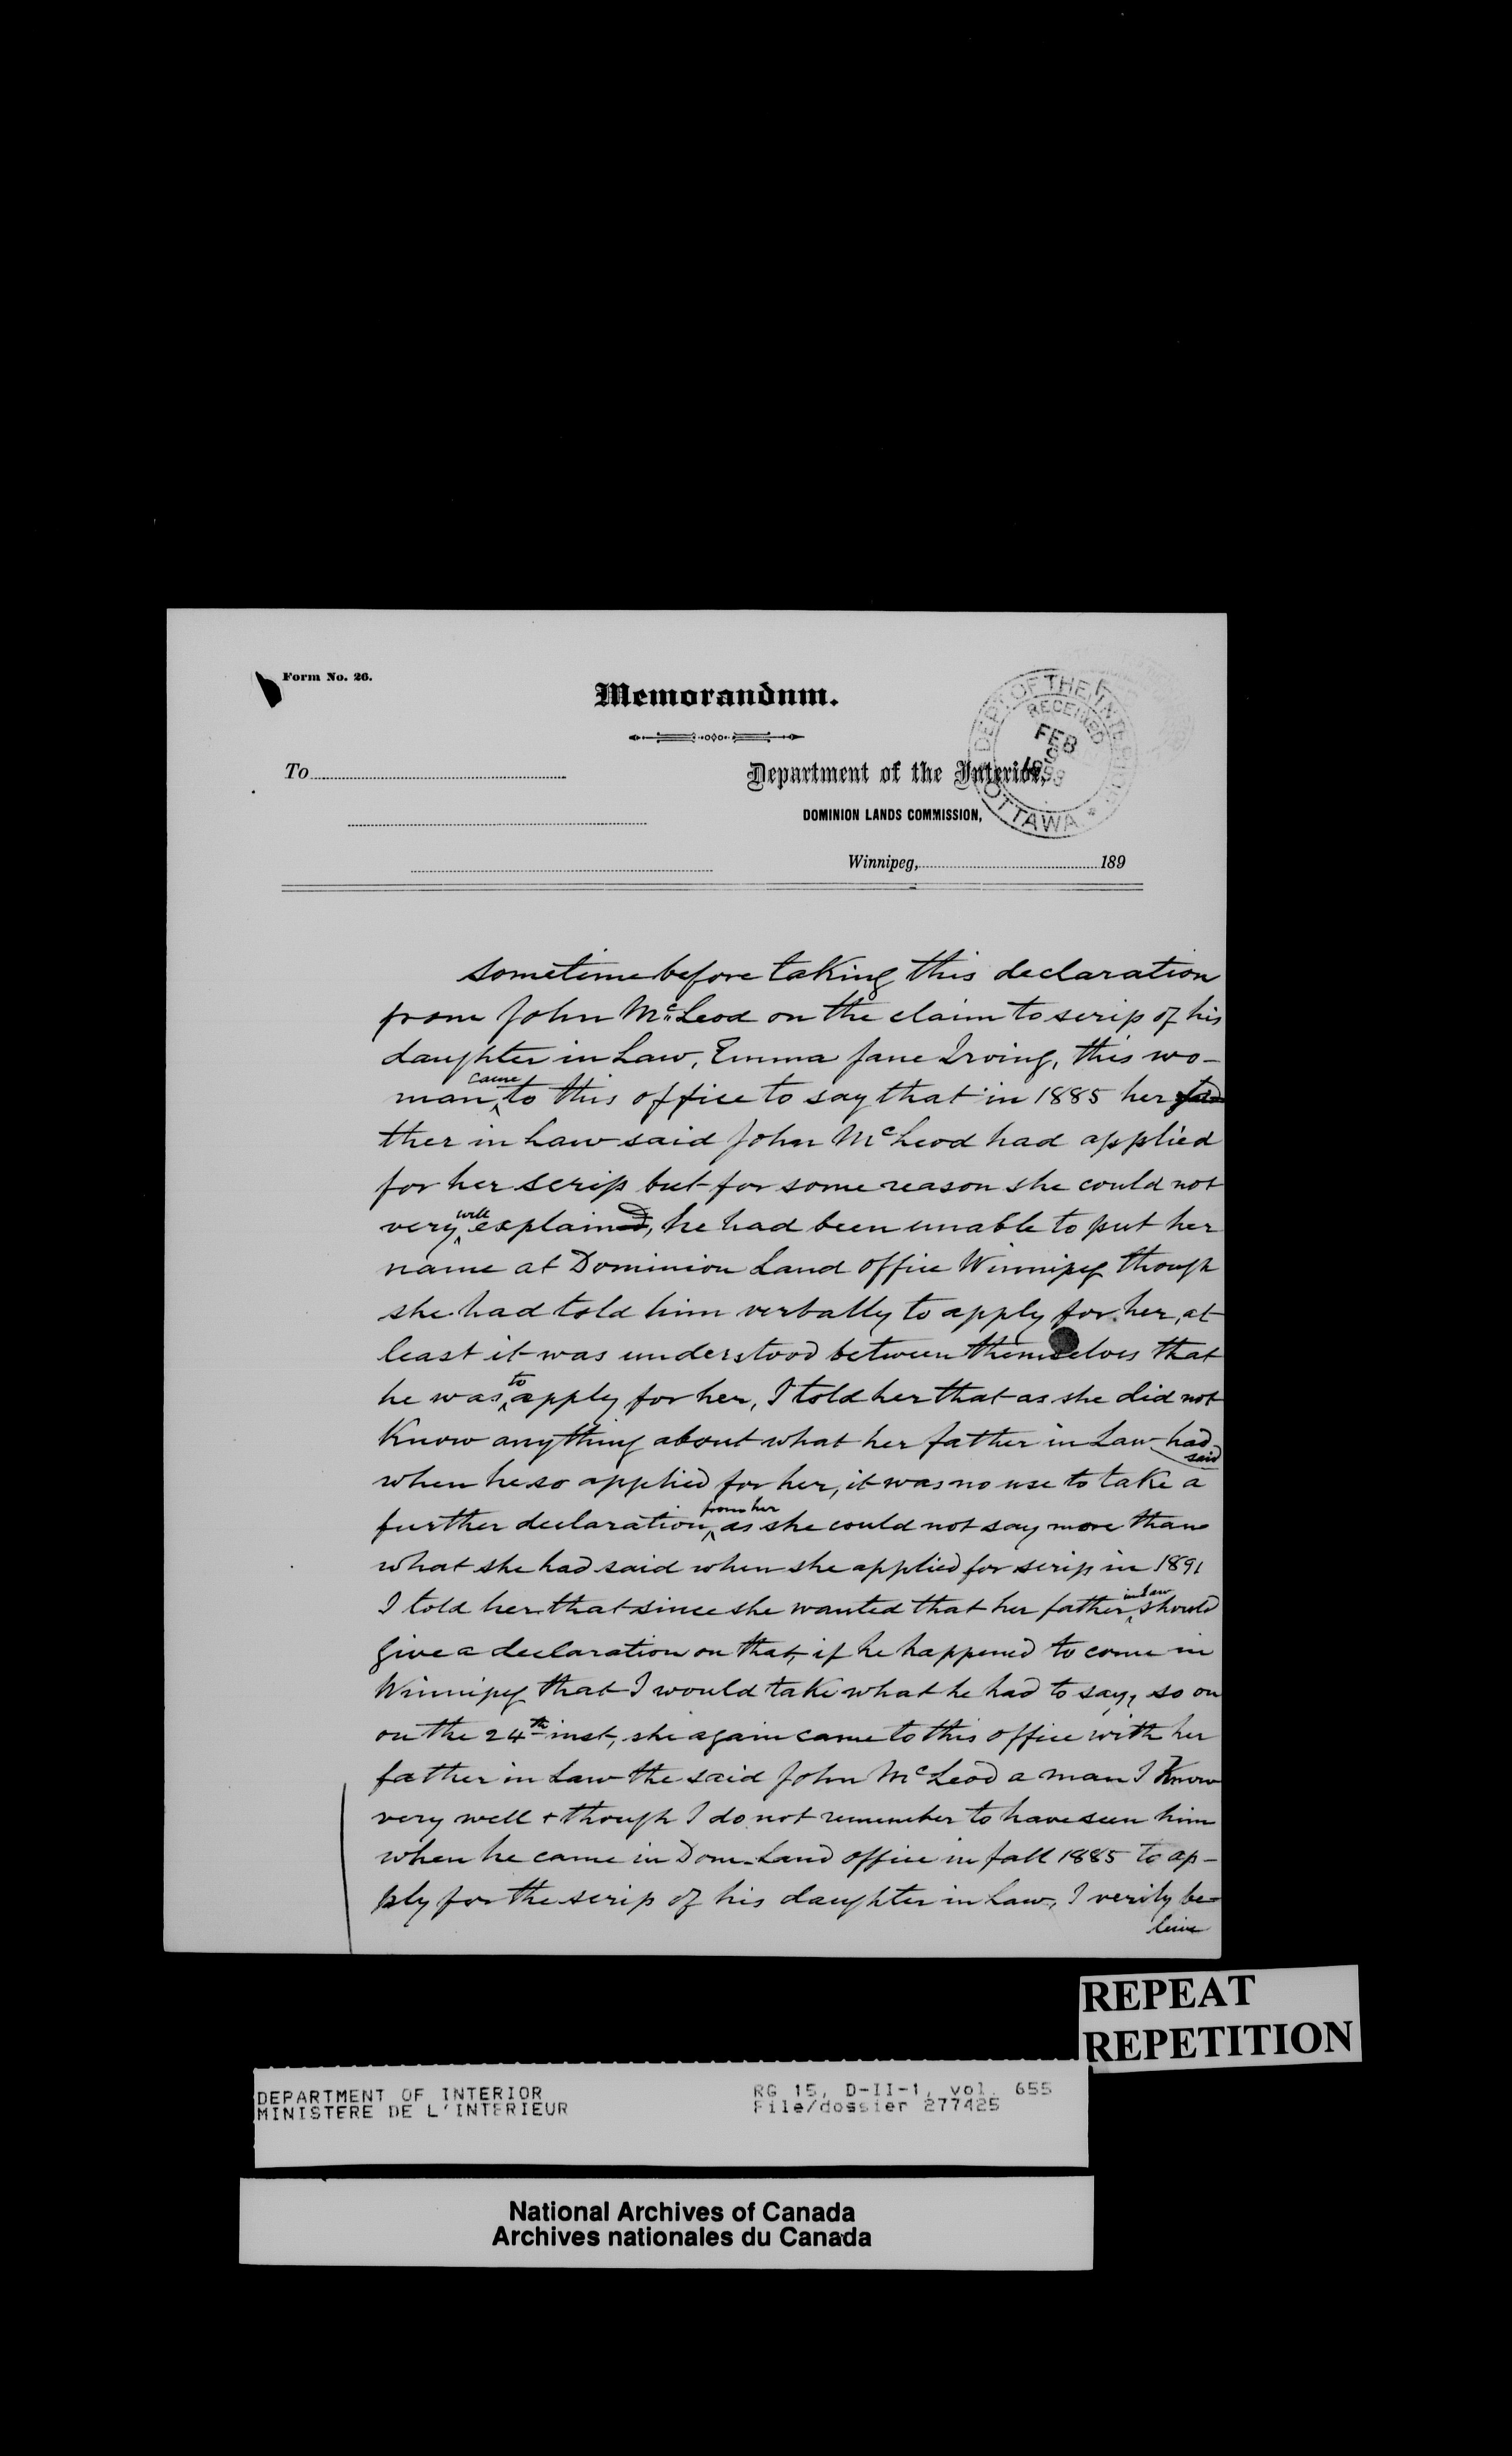 Form No. 26.
Memorandum.
DEPT. OF THE INTERIOR
RECEIVED
FEB
9
OTTAWA
To
Department of the Interior,
DOMINION LANDS COMMISSION,
Winnipeg, 189
sometime before taking this declaration
from John McLeod on the claim to scrip of his
daughter in Law, Emma Jane Irving, this wo-
man came to this office to say that in 1885 her fa
ther in Law said John McLeod had applied
for her scrip but for some reason she could not
very well explain, he had been unable to put her
name at Dominion Land office Winnipeg though
she had told him verbally to apply for her, at
least it was understood between themselves that
he was to apply for her, I told her that as she did not
Know anything about what her father in Law had
said
when he so applied for her, it was no use to take a
further declaration from her as she could not say more than
what she had said when she applied for scrip in 1891
I told her that since she wanted that her father in Law should
give a declaration on that, if he happened to come in
Winnipeg that I would take what he had to say, so on
on the 24th inst, she again came to this office with her
father in Law the said John McLeod a man I Know
very well + though I do not remember to have seen him
when he came in Dom. Land office in fall 1885 to ap-
ply for the scrip of his daughter in Law, I verily be-
leive
REPEAT
REPETITION
DEPARTMENT OF INTERIOR
MINISTERE DE L'INTERIEUR
RG 15, D-II-1, vol. 655
File/dossier 277425
National Archives of Canada
Archives nationales du Canada